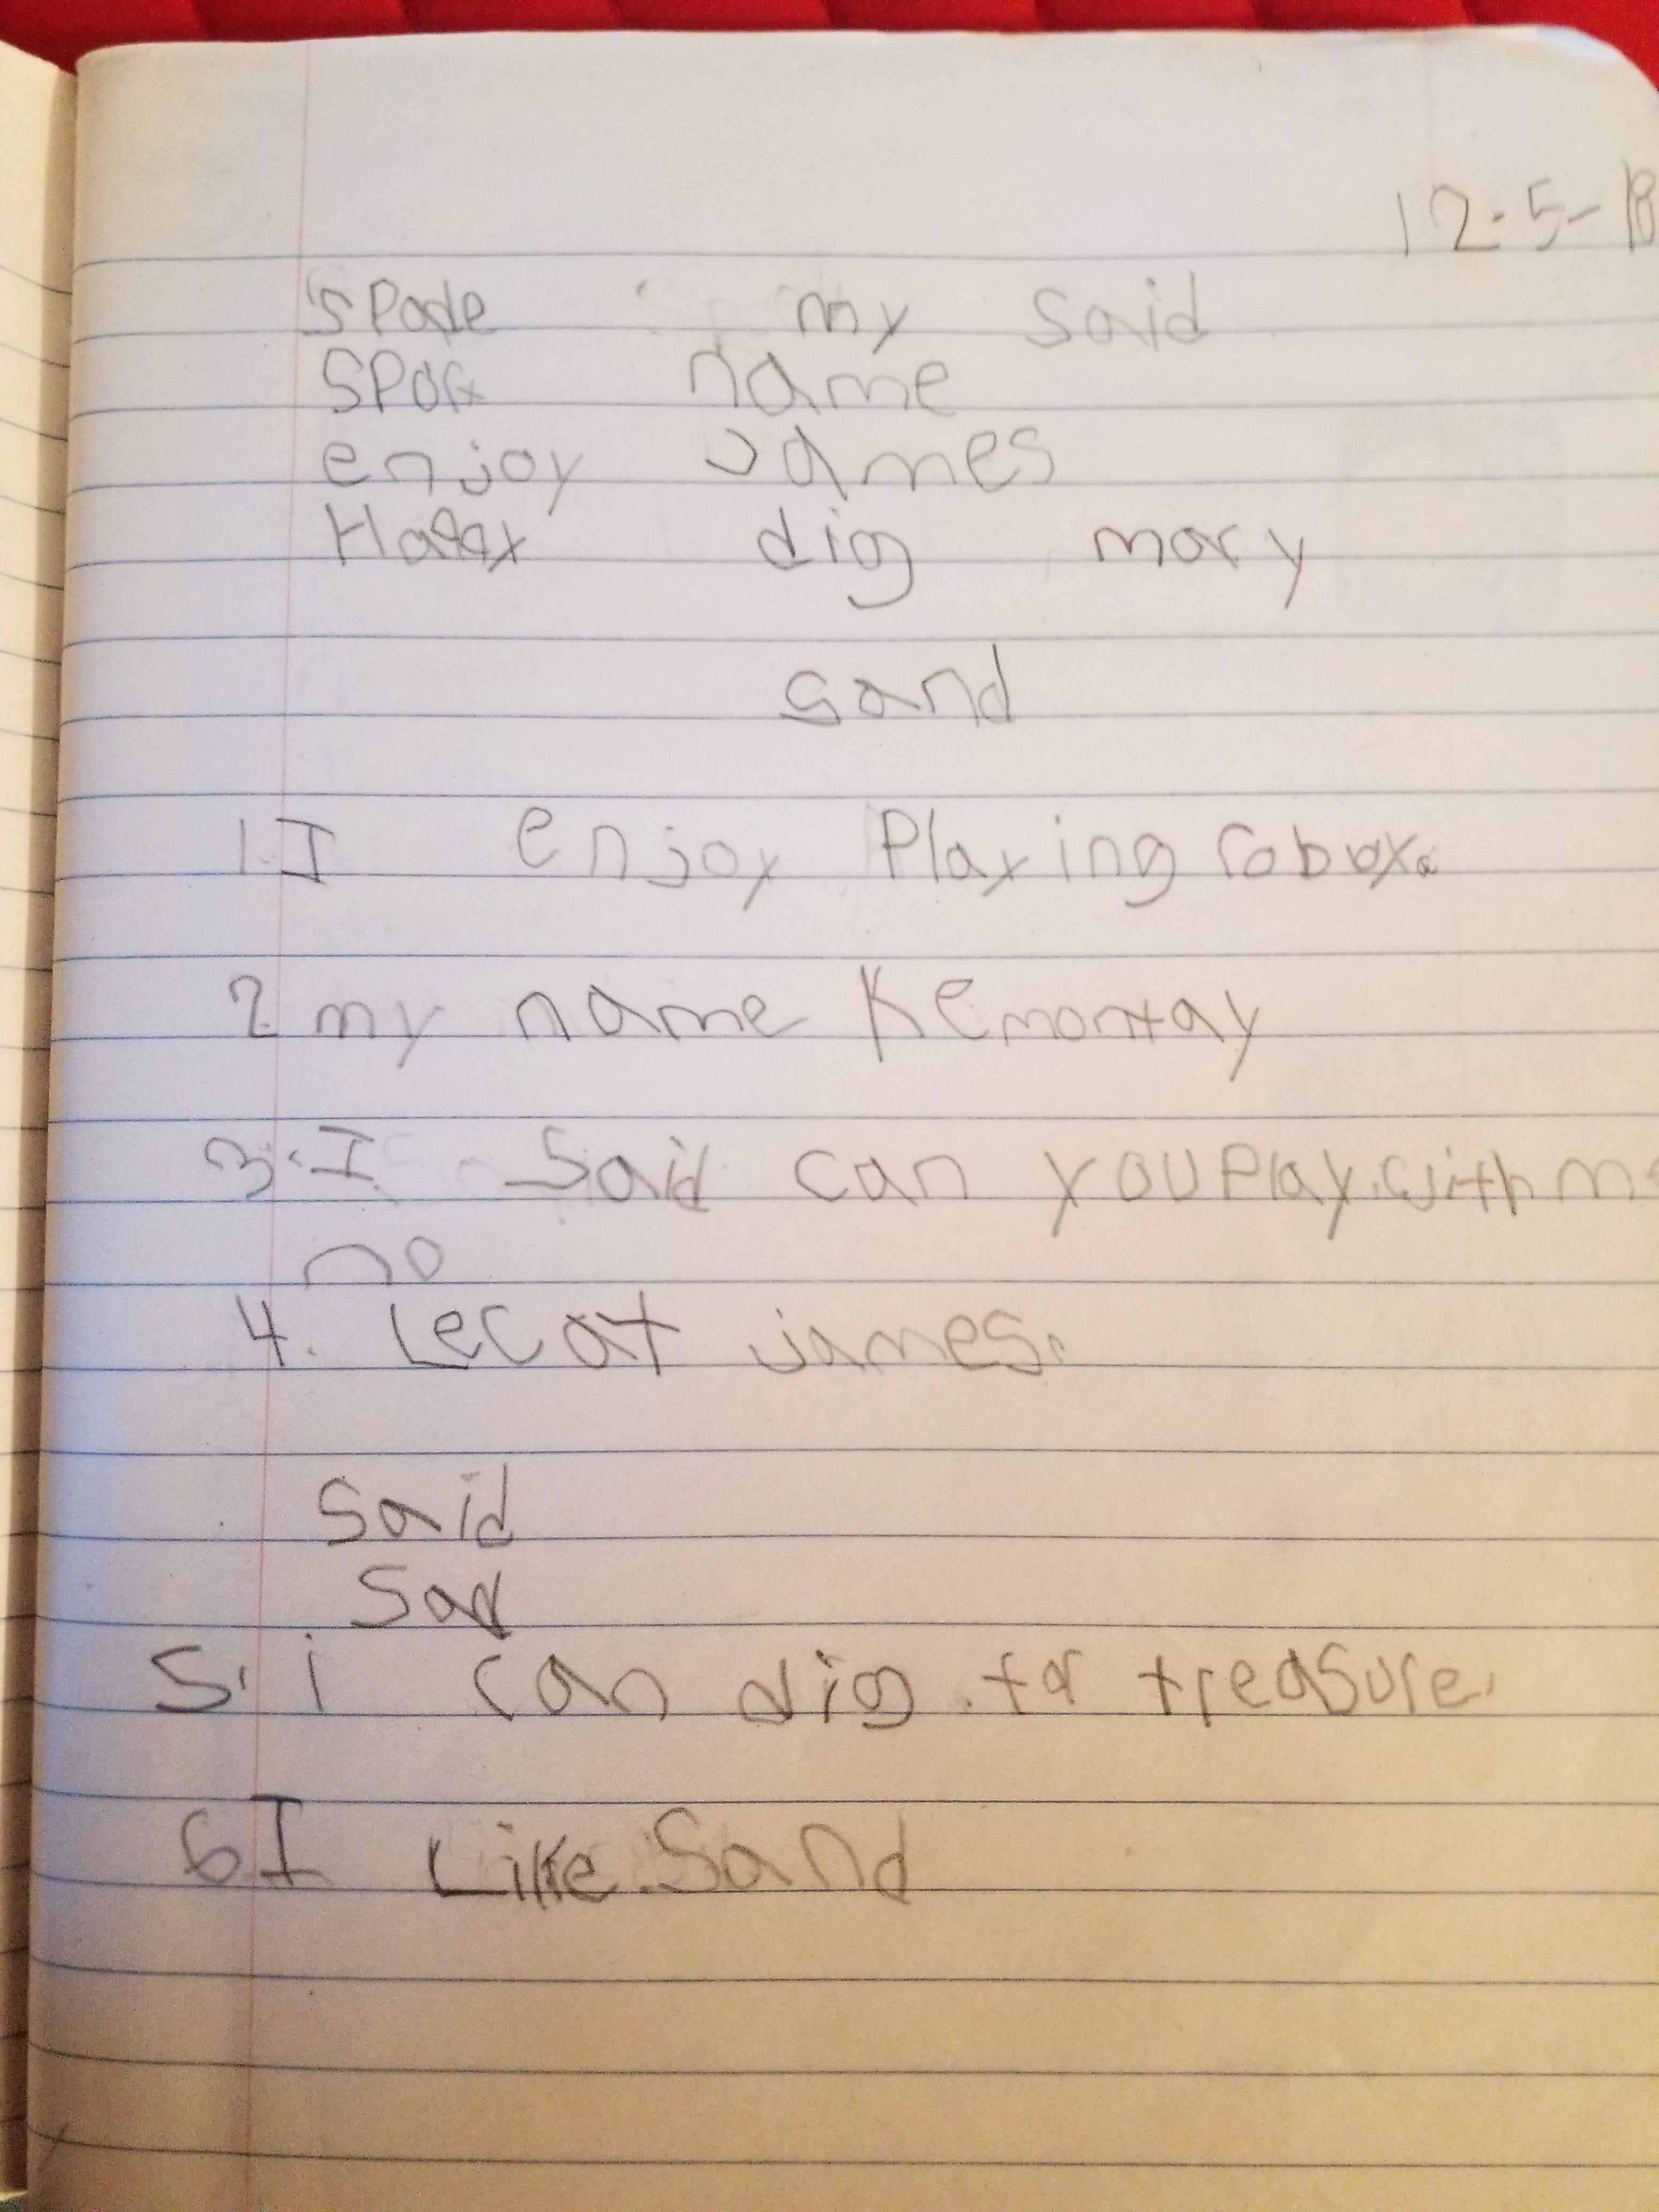 12-5-18
spade my said
SPOrt name
enjoy James
dig mary
sand
1. I enjoy Playing robox.
2 my name Kemontay
3. I Said can you Play with me
no
4. Lecat james.
Said
Sad
5. i can dig for treasure.
6 I Like Sand